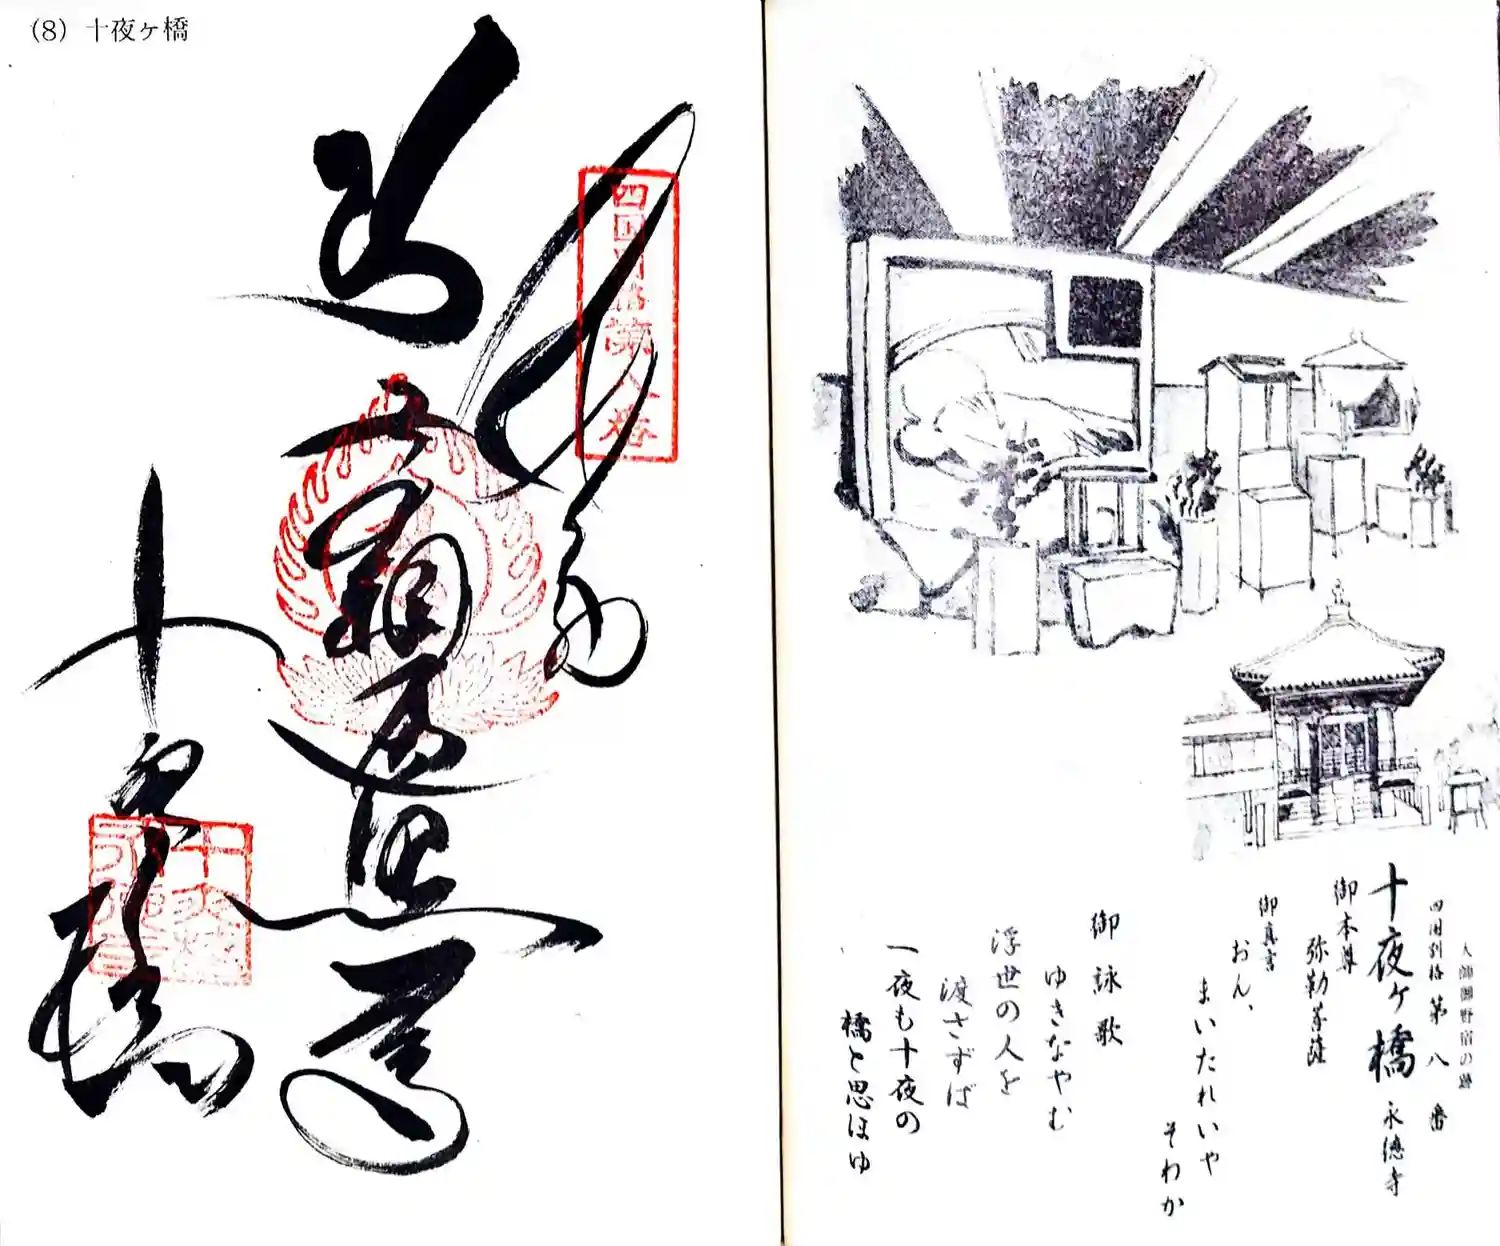 (8) 十夜ヶ橋
四国別格第八番
奉
十夜ヶ橋
十夜橋
大師御野宿の跡
四国別格 第八番
十夜ヶ橋 永徳寺
御本尊
弥勒菩薩
御真言
おん、
まいたれいや
そわか
御詠歌
ゆきなやむ
浮世の人を
渡さずば
一夜も十夜の
橋と思ほゆ